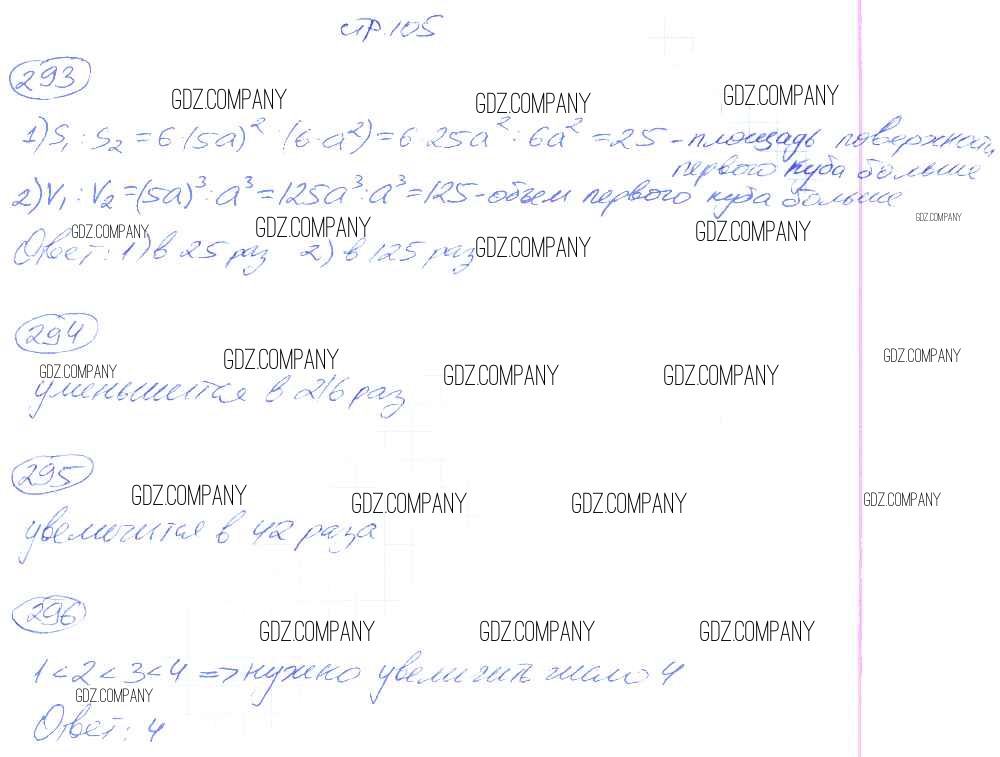 стр. 105
293
GDZ.COMPANY GDZ.COMPANY GDZ.COMPANY
1) S₁ : S₂ = 6·(5a)² : (6·a²) = 6·25a² : 6a² = 25 - площадь поверхности
первого куба больше
2) V₁ : V₂ = (5a)³ : a³ = 125a³ : a³ = 125 - объем первого куба больше
GDZ.COMPANY GDZ.COMPANY GDZ.COMPANY GDZ.COMPANY GDZ.COMPANY
Ответ: 1) в 25 раз 2) в 125 раз
294
GDZ.COMPANY GDZ.COMPANY GDZ.COMPANY GDZ.COMPANY GDZ.COMPANY
уменьшится в 216 раз
295
GDZ.COMPANY GDZ.COMPANY GDZ.COMPANY GDZ.COMPANY
увеличится в 42 раза
296
GDZ.COMPANY GDZ.COMPANY GDZ.COMPANY
1 < 2 < 3 < 4 => нужно увеличить число 4
GDZ.COMPANY
Ответ: 4